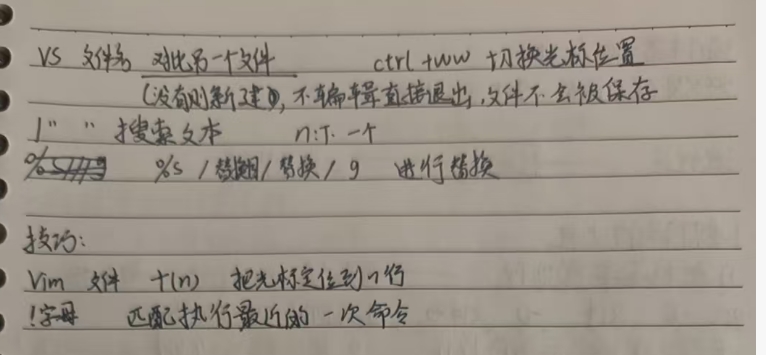 VS 文件名 对比另一个文件 ctrl+ww 切换光标位置
(没有则新建),不编辑直接退出,文件不会被保存
/" " 搜索文本 n:下一个
%s /替换/ 替换/ g 进行替换
技巧:
Vim 文件 +(n) 把光标定位到n行
!字母 匹配执行最近的一次命令